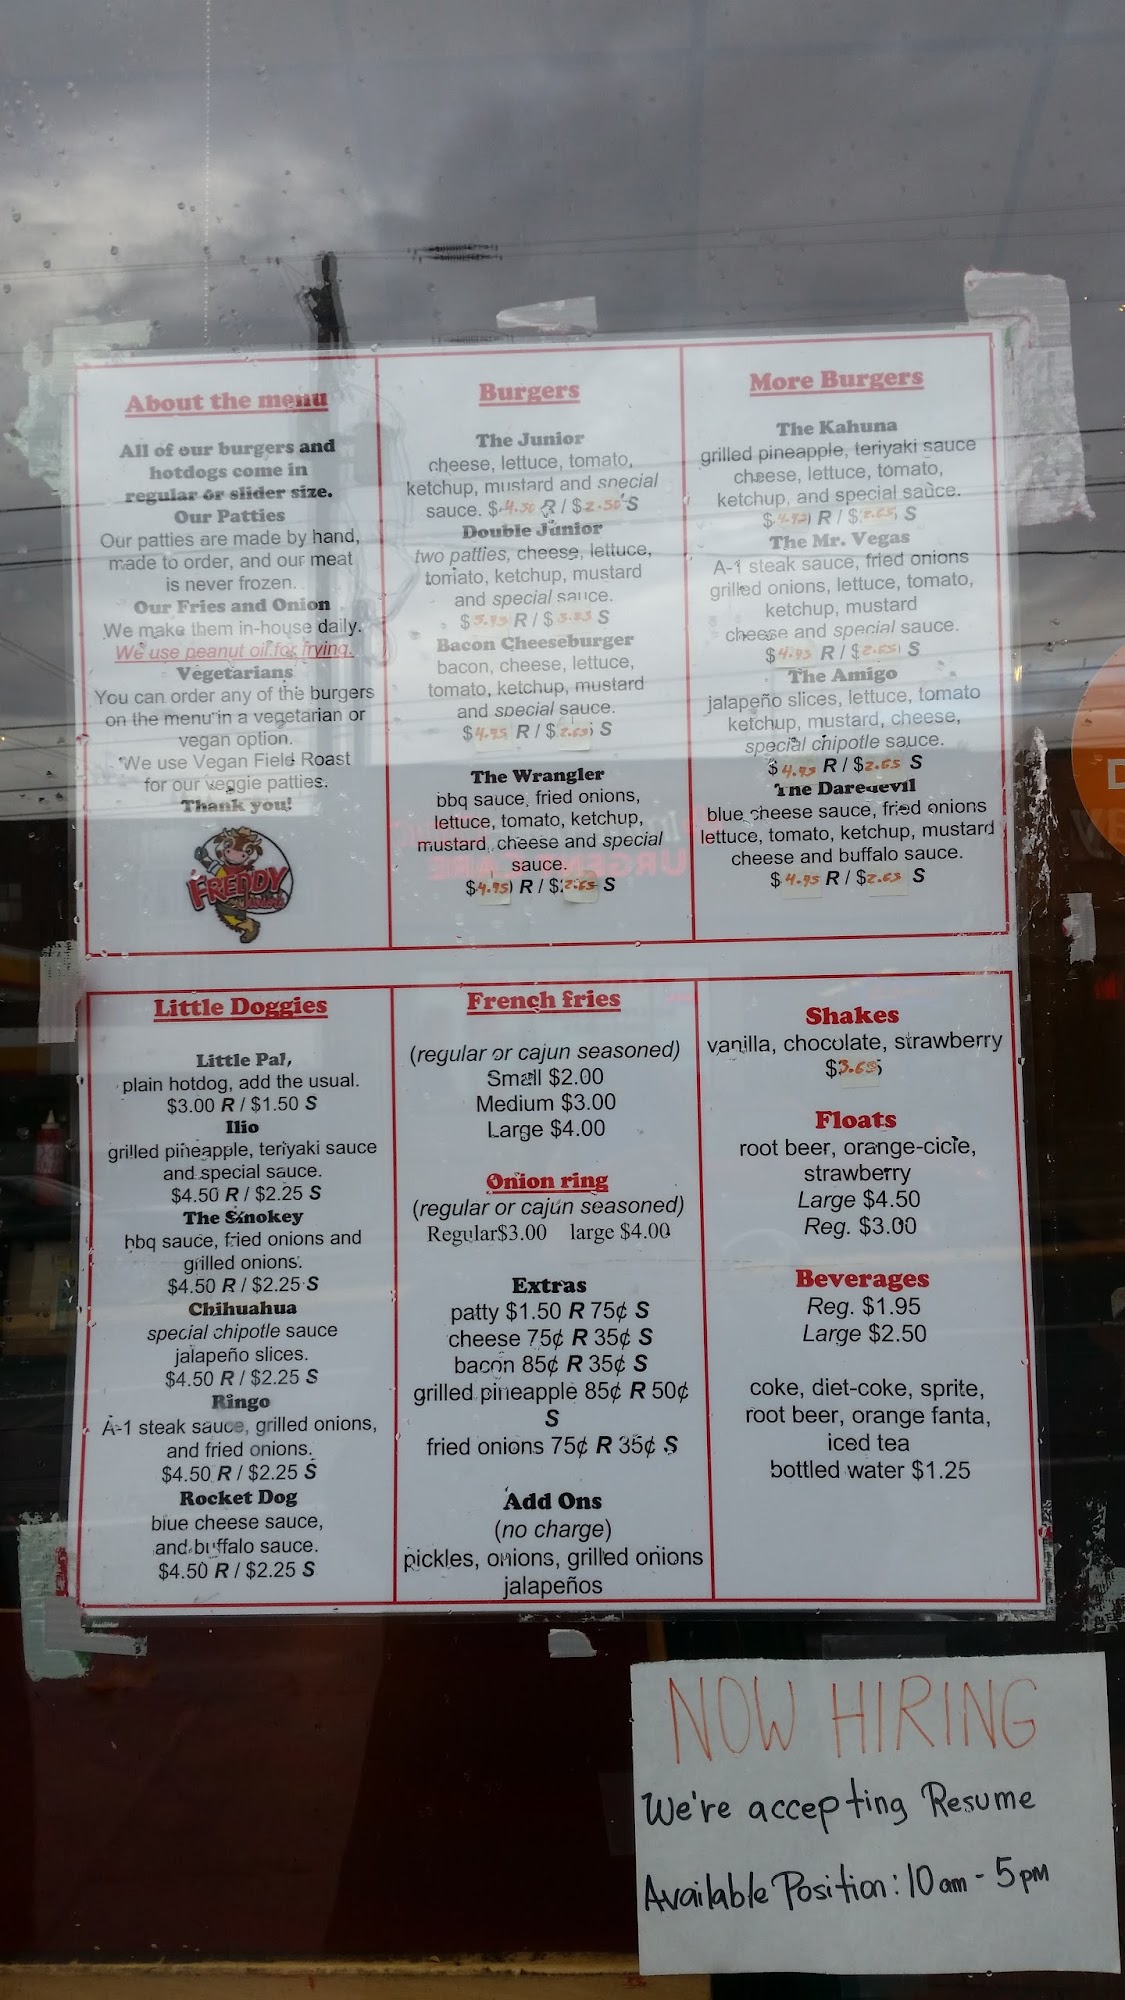 About the menu
All of our burgers and
hotdogs come in
regular or slider size.
Our Patties
Our patties are made by hand,
made to order, and our meat
is never frozen.
Our Fries and Onion
We make them in-house daily.
We use peanut oil for frying.
Vegetarians
You can order any of the burgers
on the menu in a vegetarian or
vegan option.
We use Vegan Field Roast
for our veggie patties.
Thank you!
FREDDY
Junior's
Burgers
The Junior
cheese, lettuce, tomato,
ketchup, mustard and special
sauce. $4.50 R / $2.50 S
Double Junior
two patties, cheese, lettuce,
tomato, ketchup, mustard
and special sauce.
R / $ S
Bacon Cheeseburger
bacon, cheese, lettuce,
tomato, ketchup, mustard
and special sauce.
$4.95 R / $2.65 S
The Wrangler
bbq sauce, fried onions,
lettuce, tomato, ketchup,
mustard, cheese and special
sauce.
$4.95 R / $2.65 S
More Burgers
The Kahuna
grilled pineapple, teriyaki sauce
cheese, lettuce, tomato,
ketchup, and special sauce.
$4.95 R / $2.65 S
The Mr. Vegas
A-1 steak sauce, fried onions
grilled onions, lettuce, tomato,
ketchup, mustard
cheese and special sauce.
$4.95 R / $2.65 S
The Amigo
jalapeño slices, lettuce, tomato
ketchup, mustard, cheese,
special chipotle sauce.
$4.95 R / $2.65 S
The Daredevil
blue cheese sauce, fried onions
lettuce, tomato, ketchup, mustard
cheese and buffalo sauce.
$4.95 R / $2.65 S
Little Doggies
Little Pal,
plain hotdog, add the usual.
$3.00 R / $1.50 S
Ilio
grilled pineapple, teriyaki sauce
and special sauce.
$4.50 R / $2.25 S
The Smokey
bbq sauce, fried onions and
grilled onions.
$4.50 R / $2.25 S
Chihuahua
special chipotle sauce
jalapeño slices.
$4.50 R / $2.25 S
Ringo
A-1 steak sauce, grilled onions,
and fried onions.
$4.50 R / $2.25 S
Rocket Dog
blue cheese sauce,
and buffalo sauce.
$4.50 R / $2.25 S
French fries
(regular or cajun seasoned)
Small $2.00
Medium $3.00
Large $4.00
Onion ring
(regular or cajun seasoned)
Regular$3.00 large $4.00
Extras
patty $1.50 R 75¢ S
cheese 75¢ R 35¢ S
bacon 85¢ R 35¢ S
grilled pineapple 85¢ R 50¢
S
fried onions 75¢ R 35¢ S
Add Ons
(no charge)
pickles, onions, grilled onions
jalapeños
Shakes
vanilla, chocolate, strawberry
$3.65
Floats
root beer, orange-cicle,
strawberry
Large $4.50
Reg. $3.00
Beverages
Reg. $1.95
Large $2.50
coke, diet-coke, sprite,
root beer, orange fanta,
iced tea
bottled water $1.25
NOW HIRING
We're accepting Resume
Available Position: 10 am - 5 PM